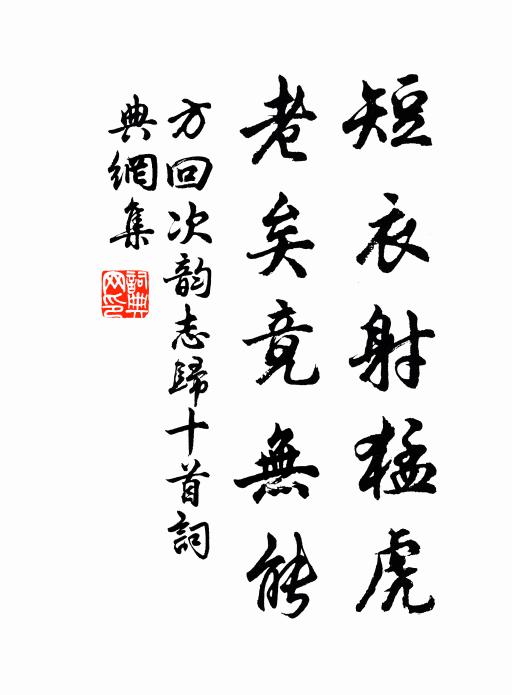 短衣射猛虎
老矣竟無能
方回次韵志歸十首詞
典網集
詞典
网印